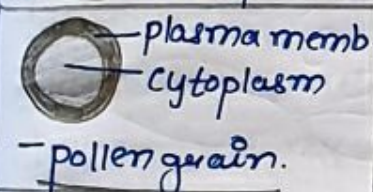 plasma memb
cytoplasm
- pollen grain.